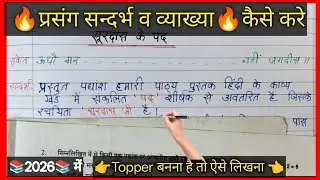 🔥प्रसंग सन्दर्भ व व्याख्या🔥कैसे करे
सूरदास के पद
संकेत ऊधौ मन - नहीं जगदीस।
सन्दर्भ प्रस्तुत पद्यांश हमारी पाठ्य पुस्तक हिंदी के काव्य
खंड में संकलित 'पद' शीर्षक से अवतरित है। जिसके
रचयिता 'सूरदास जी' हैं।
📚2026📚में 👉Topper बनना है तो ऐसे लिखना👈